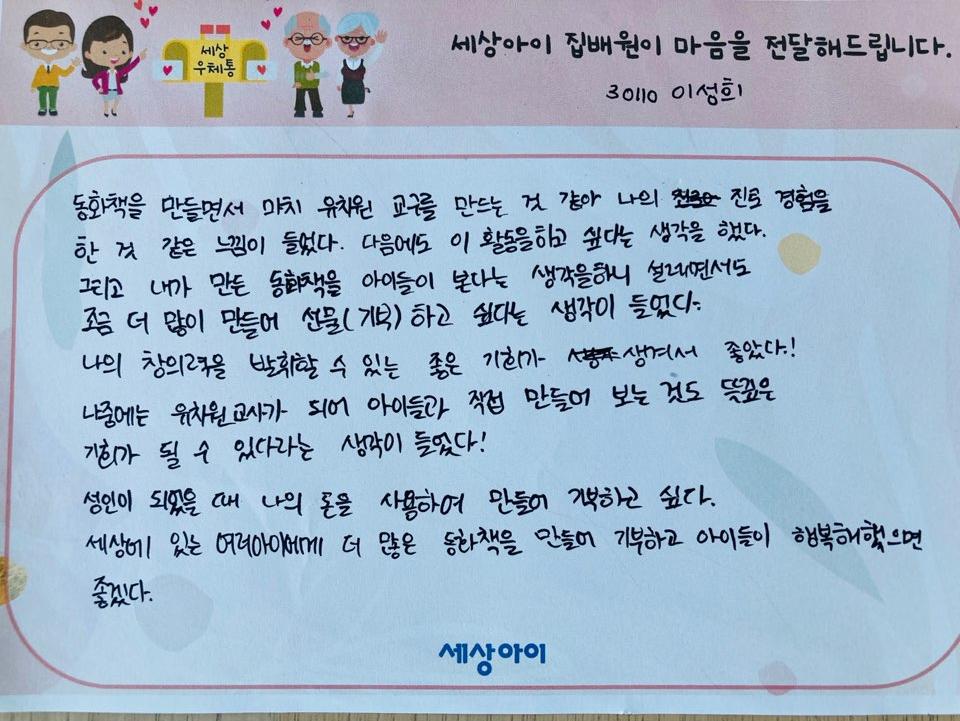 세상
우체통
세상아이 집배원이 마음을 전달해드립니다.
30110 이성희
동화책을 만들면서 마치 유치원 교구를 만드는 것 같아 나의 진로 경험을
한 것 같은 느낌이 들었다. 다음에도 이 활동을하고 싶다는 생각을 했다.
그리고 내가 만든 동화책을 아이들이 본다는 생각을하니 설레면서도
조금 더 많이 만들어 선물(기부)하고 싶다는 생각이 들었다.
나의 창의력을 발휘할 수 있는 좋은 기회가 생겨서 좋았다!
나중에는 유치원교사가 되어 아이들과 직접 만들어 보는 것도 뜻깊은
기회가 될 수 있다라는 생각이 들었다!
성인이 되었을 때 나의 돈을 사용하여 만들어 기부하고 싶다.
세상에 있는 여러아이에게 더 많은 동화책을 만들어 기부하고 아이들이 행복해했으면
좋겠다.
세상아이